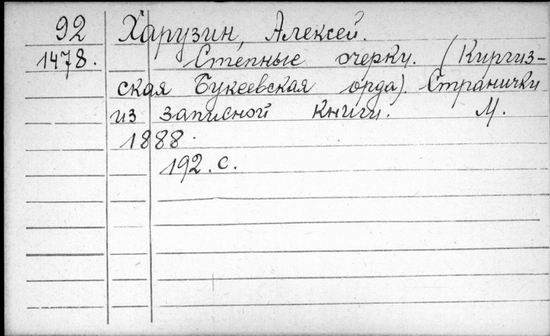 92 Харузин, Алексей.
1478. Степные очерку. (Киргиз-
ская Букеевская орда). Странички
из записной книги. М.
1888.
192. с.